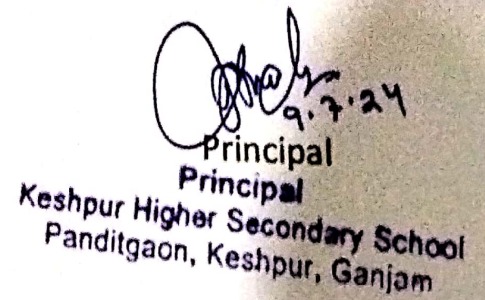 9.7.24
Principal
Principal
Keshpur Higher Secondary School
Panditgaon, Keshpur, Ganjam